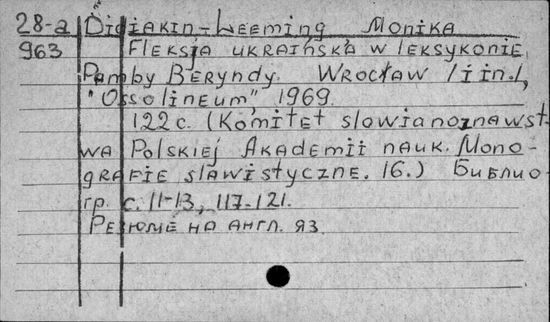 28-a Didiakin-Leeming Monika
963 Fleksja ukraińska w leksykonie
Pamby Beryndy. Wrocław /i in./,
"Ossolineum", 1969.
122 c. (Komitet słowianoznawst-
wa Polskiej Akademii nauk. Mono-
grafie slawistyczne. 16.) Библио-
гр. с. 11-13, 117-121.
Резюме на англ. яз.